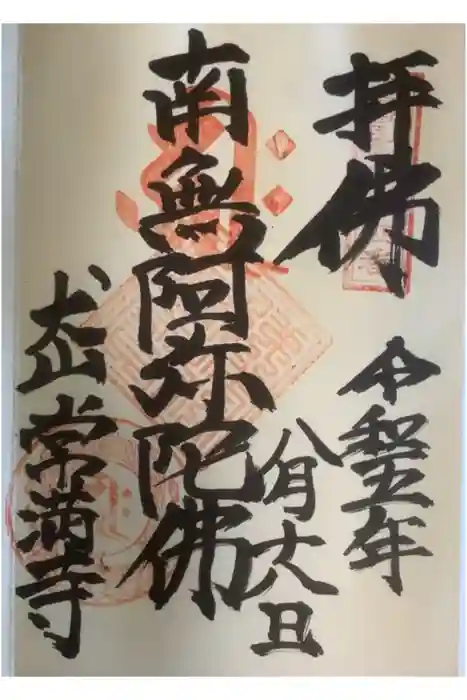 拝佛
令和五年
八月十八日
南無阿弥陀佛
常満寺